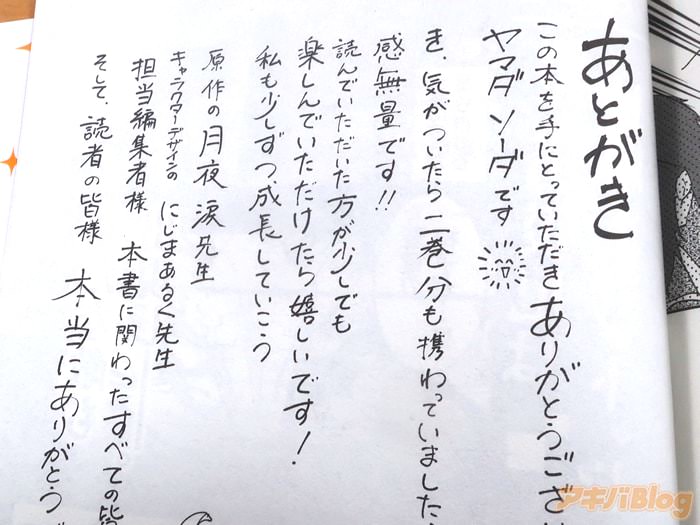 あとがき
この本を手にとっていただきありがとうござい
ヤマダソーダです
き、気がついたら二巻分も携わっていました
感無量です!!
読んでいただいた方が少しでも
楽しんでいただけたら嬉しいです!
私も少しずつ成長していこう
原作の月夜涙先生
キャラクターデザインの にじまあるく先生
担当編集者様 本書に関わったすべての皆
そして、読者の皆様 本当にありがとう
アキバBlog